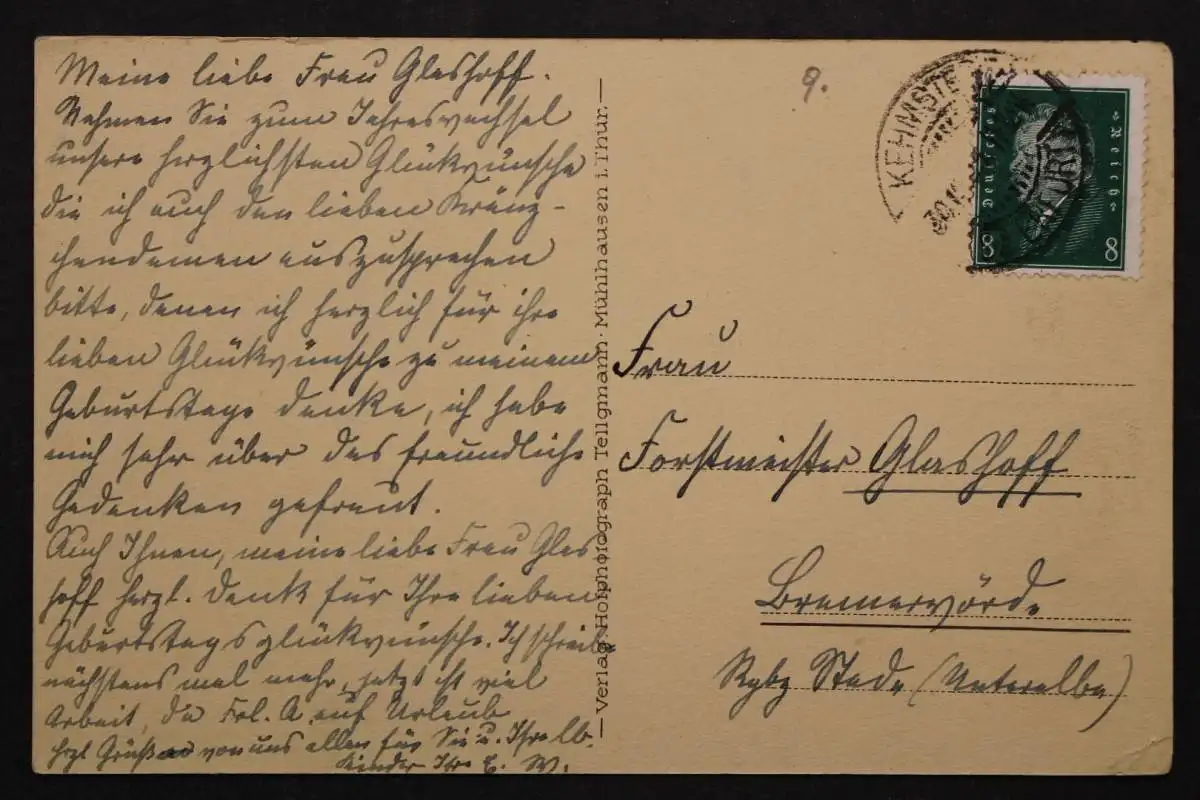 Meine liebe Frau Glashoff.
Nehmen Sie zum Jahreswechsel
unsere herzlichsten Glückwünsche
die ich auch den lieben Kränz-
chendamen auszusprechen
bitte, denen ich herzlich für ihre
lieben Glückwünsche zu meinem
Geburtstage danke, ich habe
mich sehr über das freundliche
Gedenken gefreut.
Auch Ihnen, meine liebe Frau Glas
hoff herzl. Dank für Ihre lieben
Geburtstagsglückwünsche. Ich schreibe
nächstens mal mehr, jetzt ist viel
Arbeit, da Frl. A auf Urlaub
Herzl Grüße von uns allen für Sie u. Ihre lb.
Kinder Ihre E. W.
— Verlag Hofphotograph Tellgmann · Mühlhausen i. Thür. —
9.
KEHMSTE
Deutsches Reich
8 8
Frau
Forstmeister Glashoff
Bremervörde
Rgbz Stade (Unterelbe)